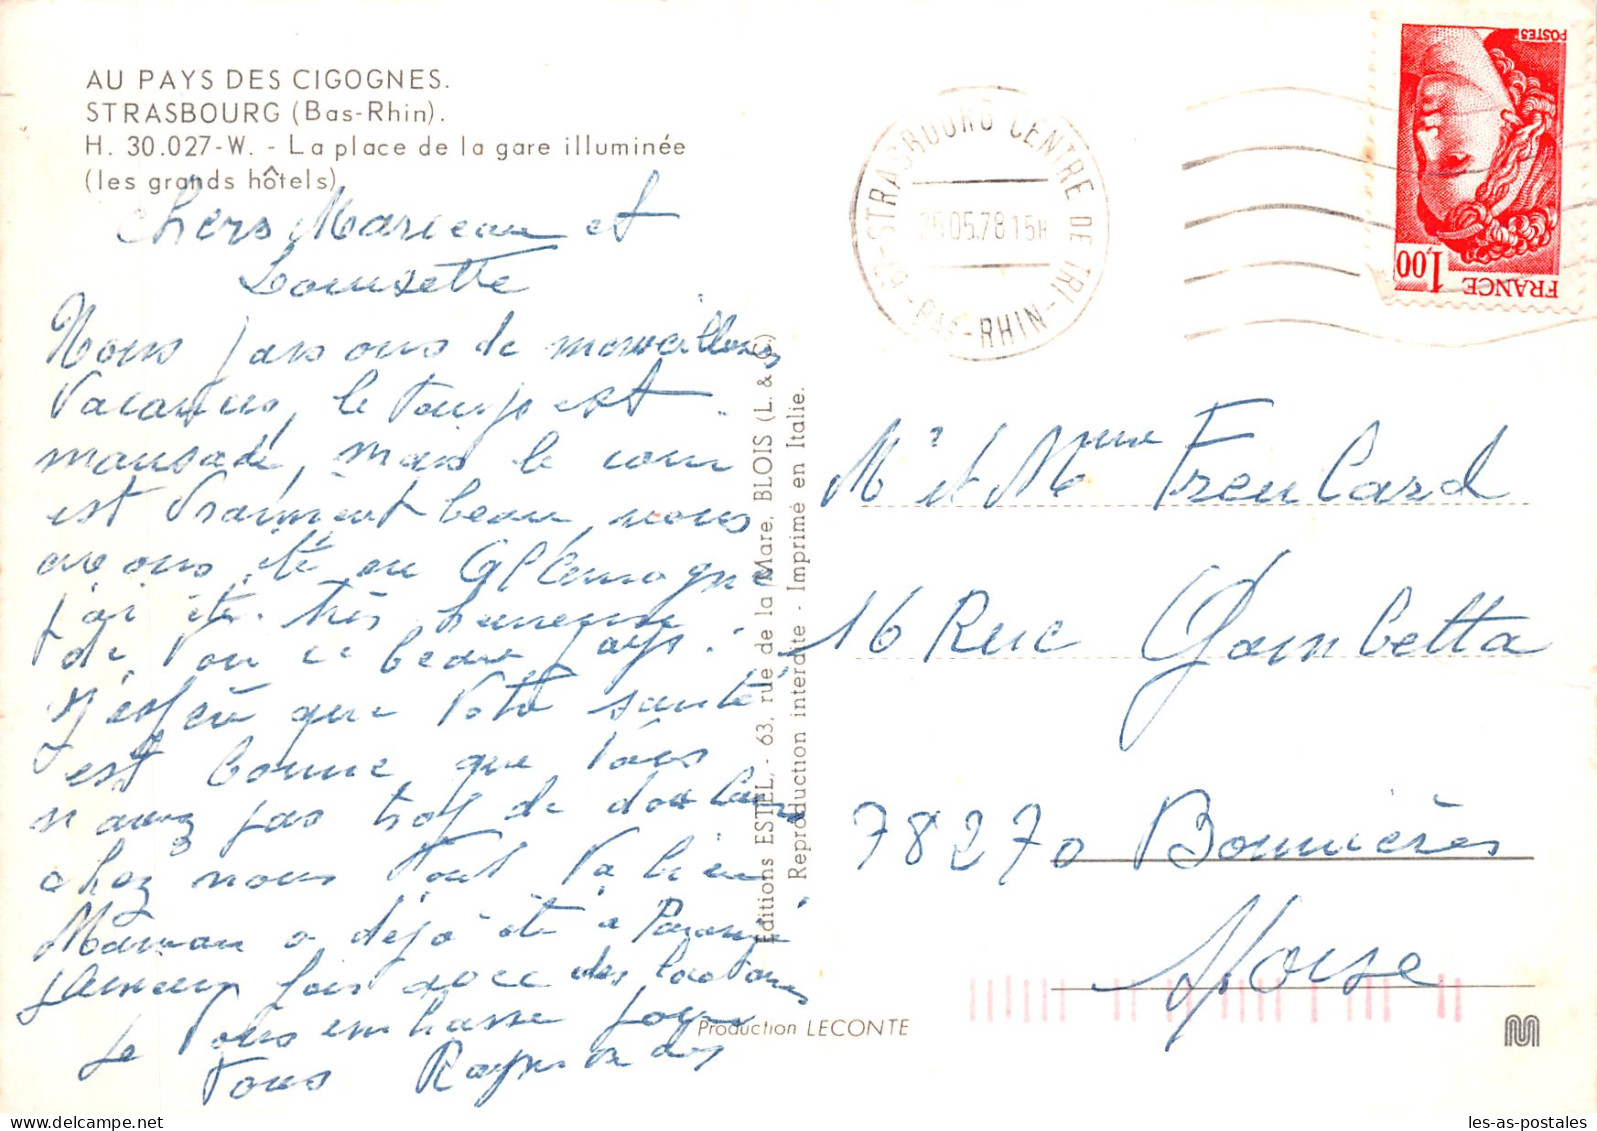 AU PAYS DES CIGOGNES.
STRASBOURG (Bas-Rhin).
H. 30.027-W. - La place de la gare illuminée
(les grands hôtels)
chers Marceau et
Lousette
Nous passons de merveilleuses
Vacances, le temps est
maussade, mais le coin
est vraiment beau, nous
avons été en Allemagne
j'ai été très heureuse
de voir ce beau pays.
J'espère que Votre santé
est bonne que Vous
n'avez pas trop de douleurs
chez nous tout va bien
Maman a déjà été à
plusieurs fois avec des
Je Vous embrasse
Tous Raymonde
Editions ESTEL, - 63, rue de la Mare, BLOIS (L. & C.)
Reproduction interdite - Imprimé en Italie.
Production LECONTE
67-STRASBOURG CENTRE DE TRI-
25.05.78 15H
BAS-RHIN
POSTES
1,00
FRANCE
Mr et Mme Freulard
16 Rue Gambetta
78270 Bonnières
S/Oise
les-as-postales